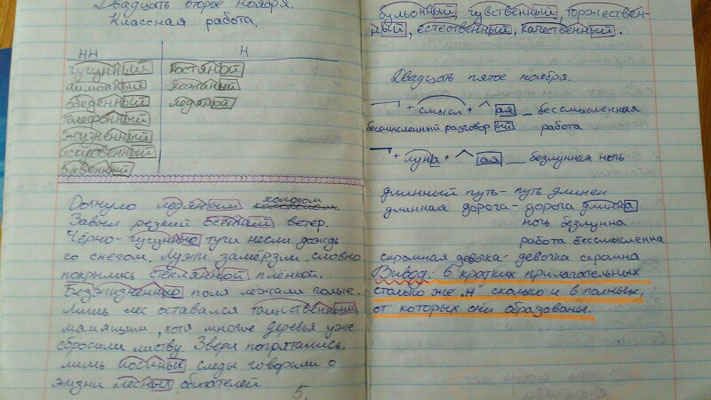 Двадцать второе ноября.
Классная работа.
НН Н
чугунный костяной
лимонный кожаный
обеденный ледяной
телефонный
жизненный
искусственный
Дохнуло ледяным холодом
Завыл резкий ветер.
Чёрно-чугунные тучи несли дождь
со снегом. Лужи замёрзли, словно
покрылись стеклянной плёнкой.
Безжизненно поля лежали голые.
Лишь лес оставался таинственным
манящим, хотя многие деревья уже
сбросили листву. Звери попрятались,
лишь следы говорили о
жизни лесных обитателей
5.
бульонный, чувственный, торжествен-
ный, естественный, качественный.
Двадцать пятое ноября.
+ смысл + ая _ бессмысленная
бессмысленный разговор ый работа
+ луна + ая _ безлунная ночь
длинный путь - путь длинен
длинная дорога - дорога длинна
ночь безлунна
работа бессмысленна
скромная девочка - девочка скромна
Вывод: в кратких прилагательных
столько же "н" сколько и в полных,
от которых они образованы.